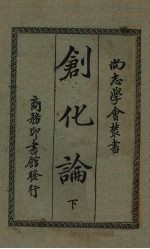 尚志學會叢書
創化論
下
商務印書館發行